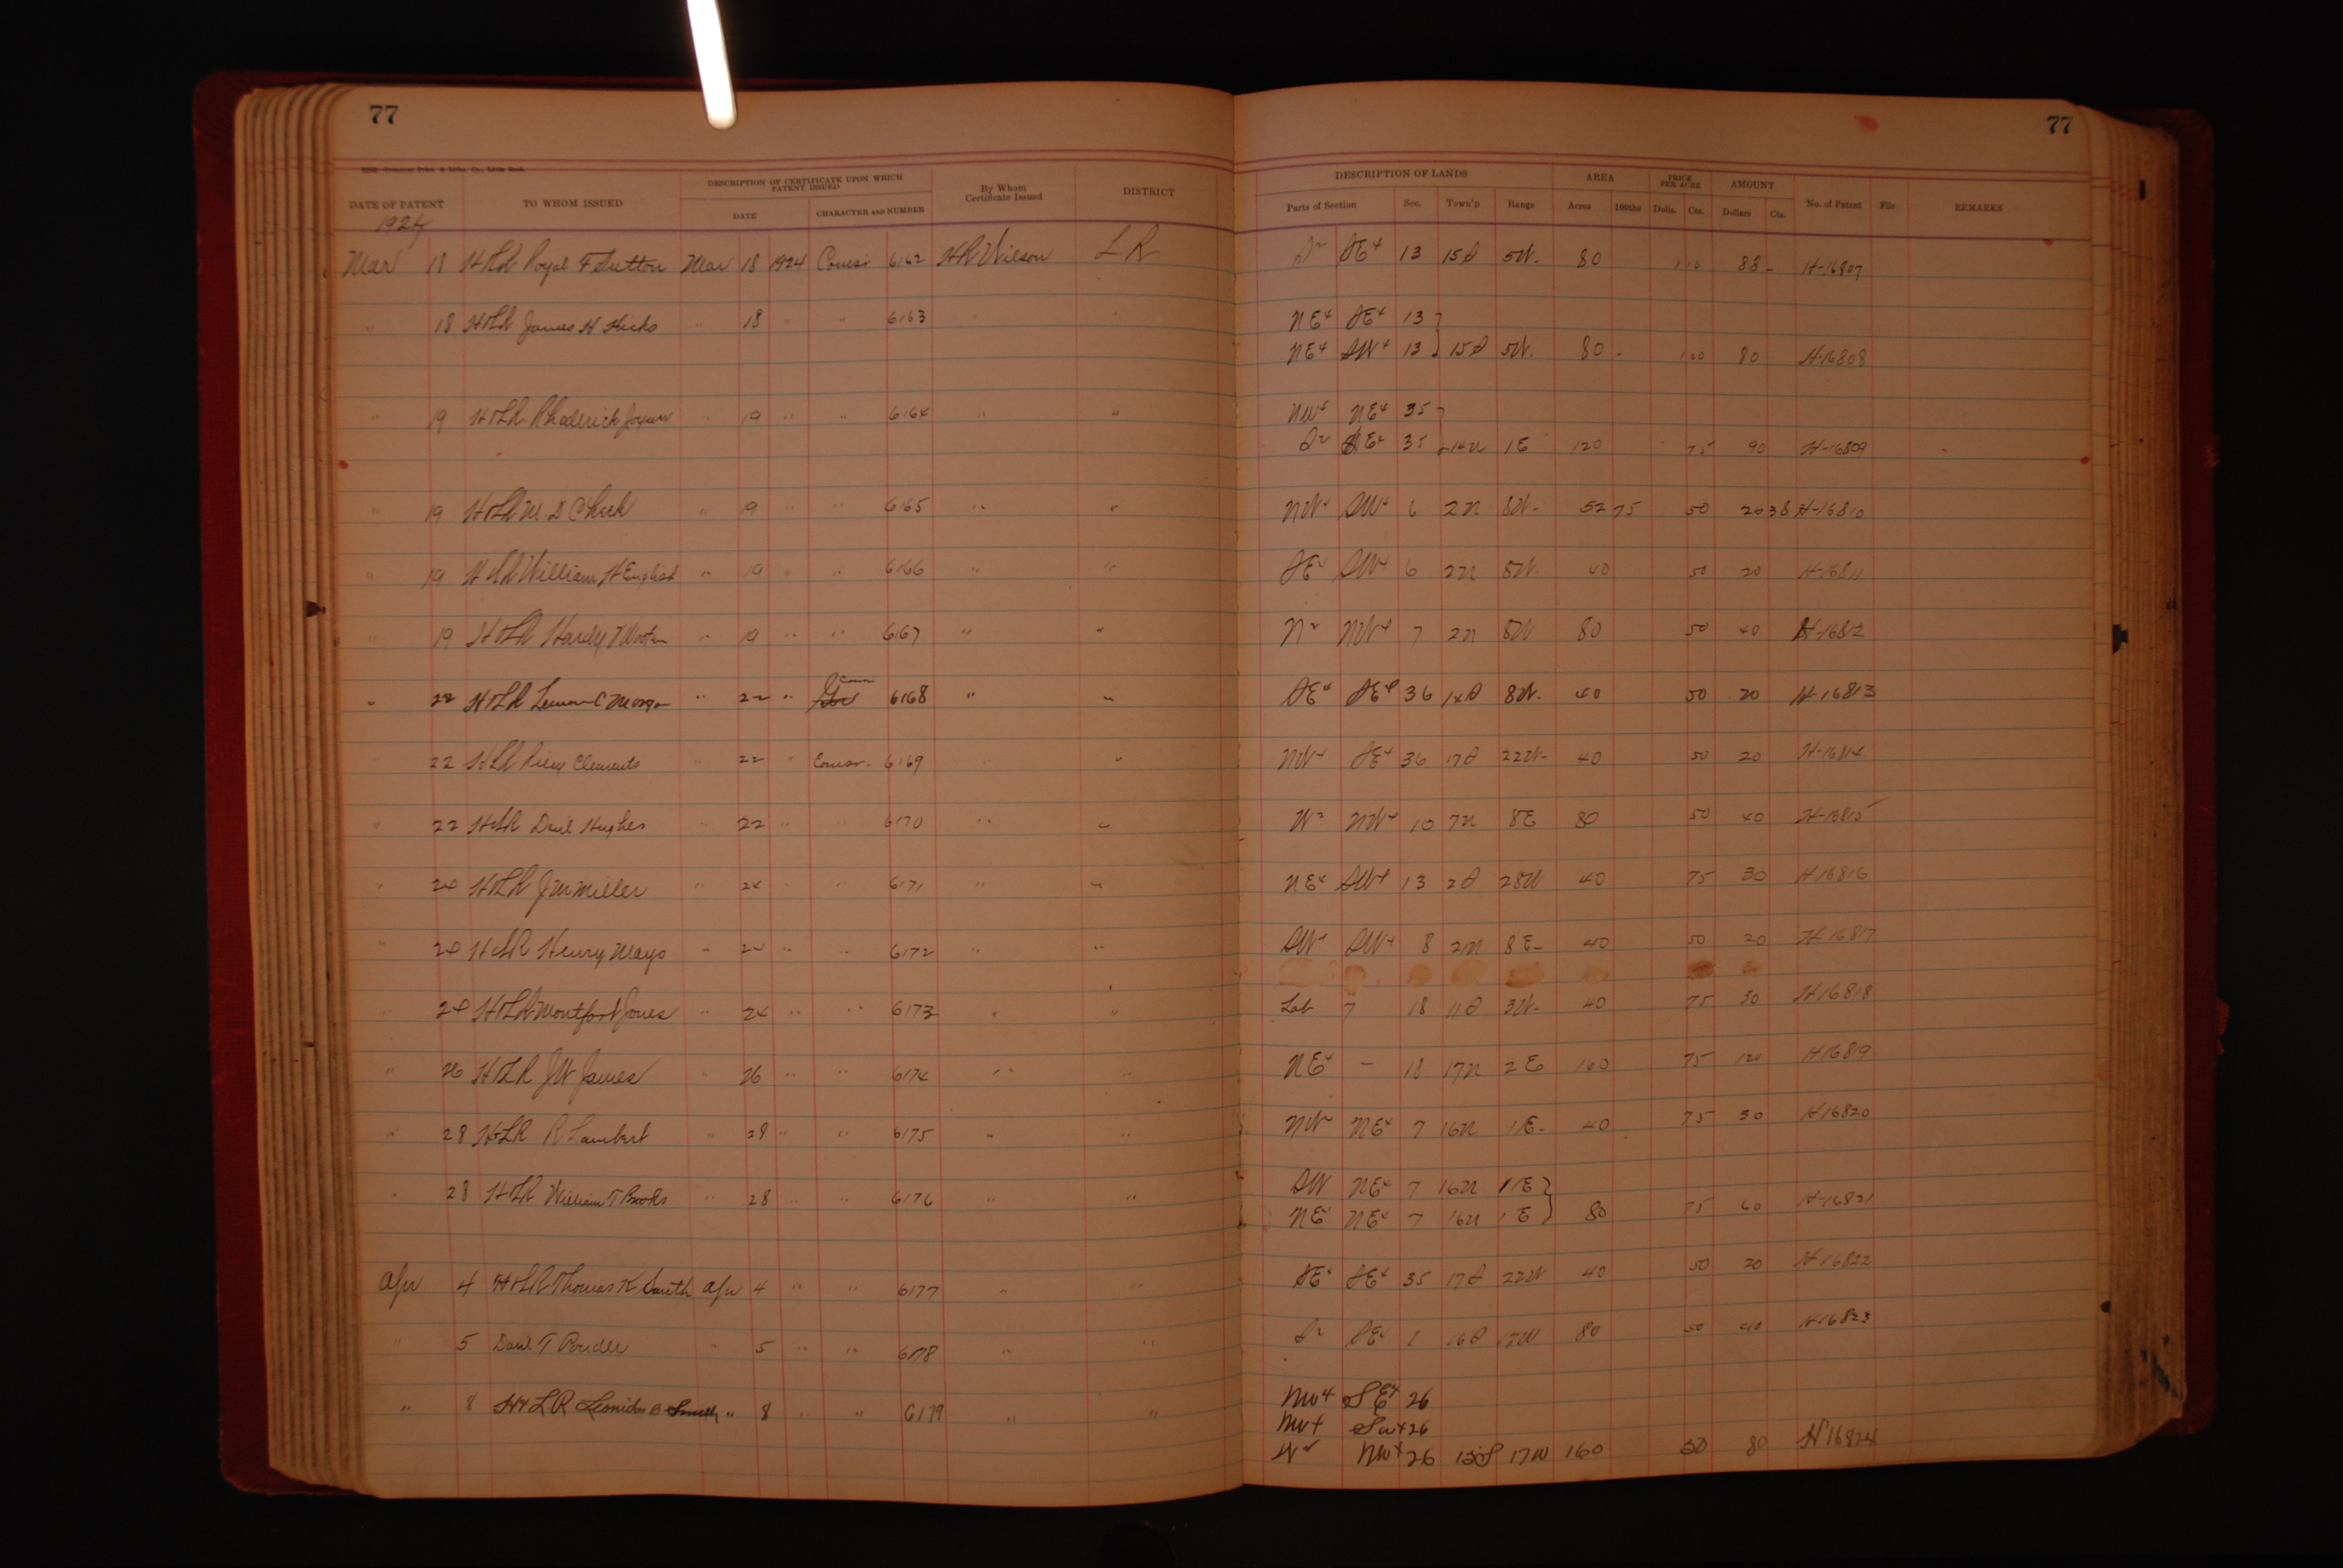 77 77
DESCRIPTION OF CERTIFICATE UPON WHICH PATENT ISSUED DESCRIPTION OF LANDS AREA PRICE PER ACRE AMOUNT
DATE OF PATENT TO WHOM ISSUED DATE CHARACTER AND NUMBER By Whom Certificate Issued DISTRICT Parts of Section Sec. Town'p Range Acres 100ths Dolls. Cts. Dollars Cts. No. of Patent File REMARKS
1924
Mar 18 H&LR Royal F Sutton Mar 18 1924 Comsr. 6162 HR Wilson L R S2 SE4 13 15S 5W. 80 1 10 88 - H-16807
" 18 H&LR James H Hicks " 18 " " 6163 " " NE4 SE4 13
NE4 SW4 13 15S 5W. 80 - 1 00 80 H-16808
" 19 H&LR Rhoderick " 19 " " 6164 " " NW4 NE4 35
S2 NE4 35 14N 1E 120 75 90 H-16809
" 19 H&LR M. D. Cheek " 19 " " 6165 " " NW4 SW4 6 2N 8W- 52 75 50 20 38 H-16810
" 19 H&LR William H English " 19 " " 6166 " " SE4 SW4 6 2N 8W- 40 50 20 H-16811
" 19 H&LR Hardy T Wooten " 19 " " 6167 " " N2 NW4 7 2N 8W 80 50 40 H-16812
" 22 H&LR C Morgan " 22 " 6168 " " SE4 SE4 36 14S 8W- 40 50 20 H-16813
" 22 H&LR Clements " 22 " Comsr. 6169 " " NW4 SE4 36 17S 22W- 40 50 20 H-16814
" 22 H&LR Hughes " 22 " " 6170 " " W2 NW4 10 7N 8E 80 50 40 H-16815
" 24 H&LR J M Miller " 24 " " 6171 " " NE4 SW4 13 2S 28W 40 75 30 H 16816
" 24 H&LR Henry Mays " 24 " " 6172 " " SW4 SW4 8 2N 8E- 40 50 20 H 16817
" 24 H&LR Montfort Jones " 24 " " 6173 " " Lot 7 18 11S 3W- 40 75 30 H 16818
" 26 H&LR J W James " 26 " " 6174 " " NE4 - 18 17N 2E 160 75 120 H 16819
" 28 H&LR R Lambert " 28 " " 6175 " " NW NE4 7 16N 1E- 40 75 30 H 16820
" 28 H&LR William T Brooks " 28 " " 6176 " " SW NE4 7 16N 1E
NE4 NE4 7 16N 1E 80 75 60 H-16821
Apr 4 H&LR Thomas K Smith Apr 4 " " 6177 " " SE4 SE4 35 17S 22W 40 50 20 H 16822
" 5 T Ponder " 5 " " 6178 " " S2 SE4 1 16S 17W 80 50 40 H 16823
" 8 H&LR Leonidas B Smith " 8 " " 6179 " " NW4 SE4 26
NW4 SW4 26
W2 NW4 26 17W 160 50 80 H 16824